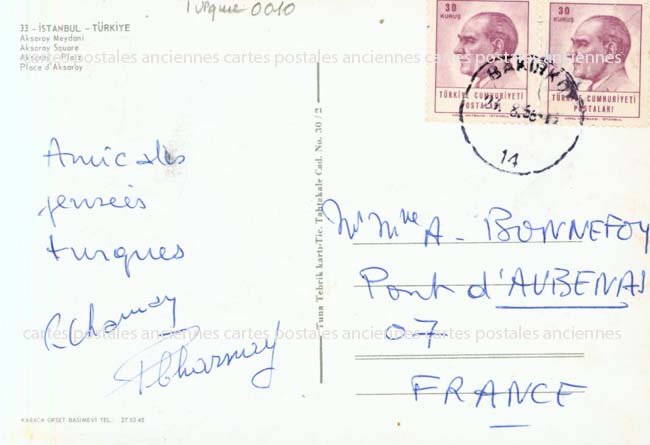 Turquie 0010
33 - İSTANBUL - TÜRKİYE
Aksaray Meydanı
Aksaray Square
Aksaray - Platz
Place d'Aksaray
cartes postales anciennes cartes postales anciennes cartes postales anciennes
30
KURUŞ
TÜRKİYE CUMHURİYETİ
POSTALARI
30
KURUŞ
TÜRKİYE CUMHURİYETİ
POSTALARI
BAKIRKÖY
14
Amicales
pensées
turques
R Charnay
Charnay
Tuna Tebrik kartı-Tic. Tahtakale Cad. No. 30/2
Mr Mme A - BONNEFOY
Pont d'AUBENAS
07
FRANCE
cartes postales anciennes cartes postales anciennes cartes postales anciennes
KARACA OFSET BASIMEVİ TEL. 27 53 45